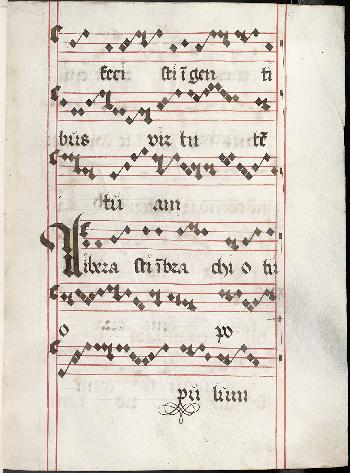 feci sti ī gen ti
bus vir tu tē
tu am
Libera sti ī bra chi o tu
o po
pu lum